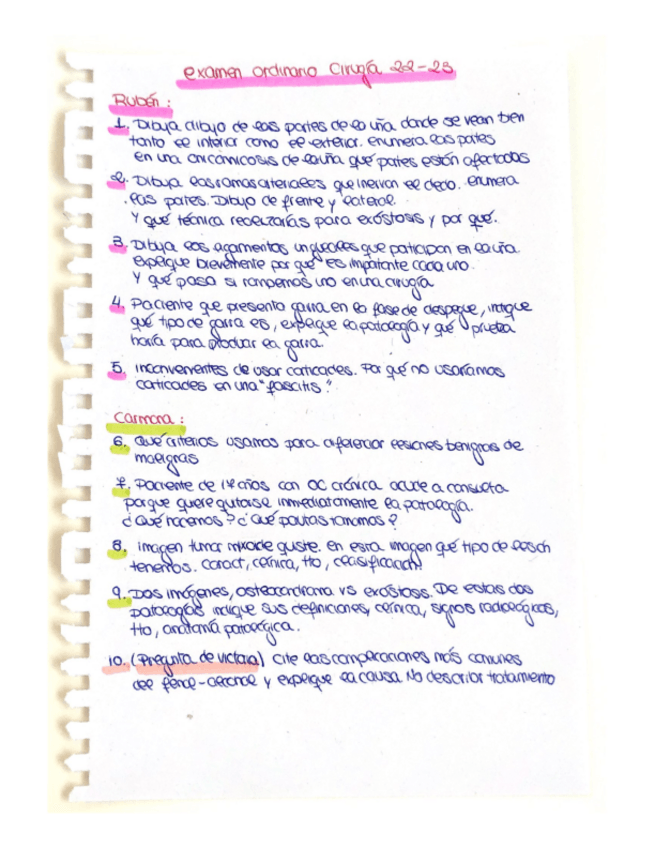 examen ordinario Cirugía 22-23
Rubén:
1. Dibuja dibujo de las partes de la uña donde se vean bien
tanto el interior como el exterior. enumera las partes
en una onicomicosis de la uña qué partes están afectadas
2. Dibuja las ramas arteriales que inervan el dedo. enumera
las partes. Dibujo de frente y lateral.
Y qué técnica realizarías para exóstosis y por qué.
3. Dibuja los ligamentos ungueales que participan en la uña.
explique brevemente por qué es importante cada uno.
Y qué pasa si rompemos uno en una cirugía
4. Paciente que presenta garra en la fase de despegue, indique
qué tipo de garra es, explique la patología y qué prueba
haría para producir la garra.
5. inconvenientes de usar corticoides. Por qué no usaríamos
corticoides en una "fascitis".
Carmona:
6. Qué criterios usamos para diferenciar lesiones benignas de
malignas
7. Paciente de 14 años con OC crónica acude a consulta
porque quiere quitarse inmediatamente la patología.
¿Qué hacemos? ¿Qué pautas tomamos?
8. imagen tumor mixoide quiste. en esta imagen qué tipo de lesión
tenemos. Caract, clínica, tto, clasificación
9. Dos imágenes, osteocondroma vs exóstosis. De estas dos
patologías indique sus definiciones, clínica, signos radiológicos,
tto, anatomía patológica.
10. (Pregunta de victoria) Cite las complicaciones más comunes
del fenol-alcohol y explique la causa. No describir tratamiento